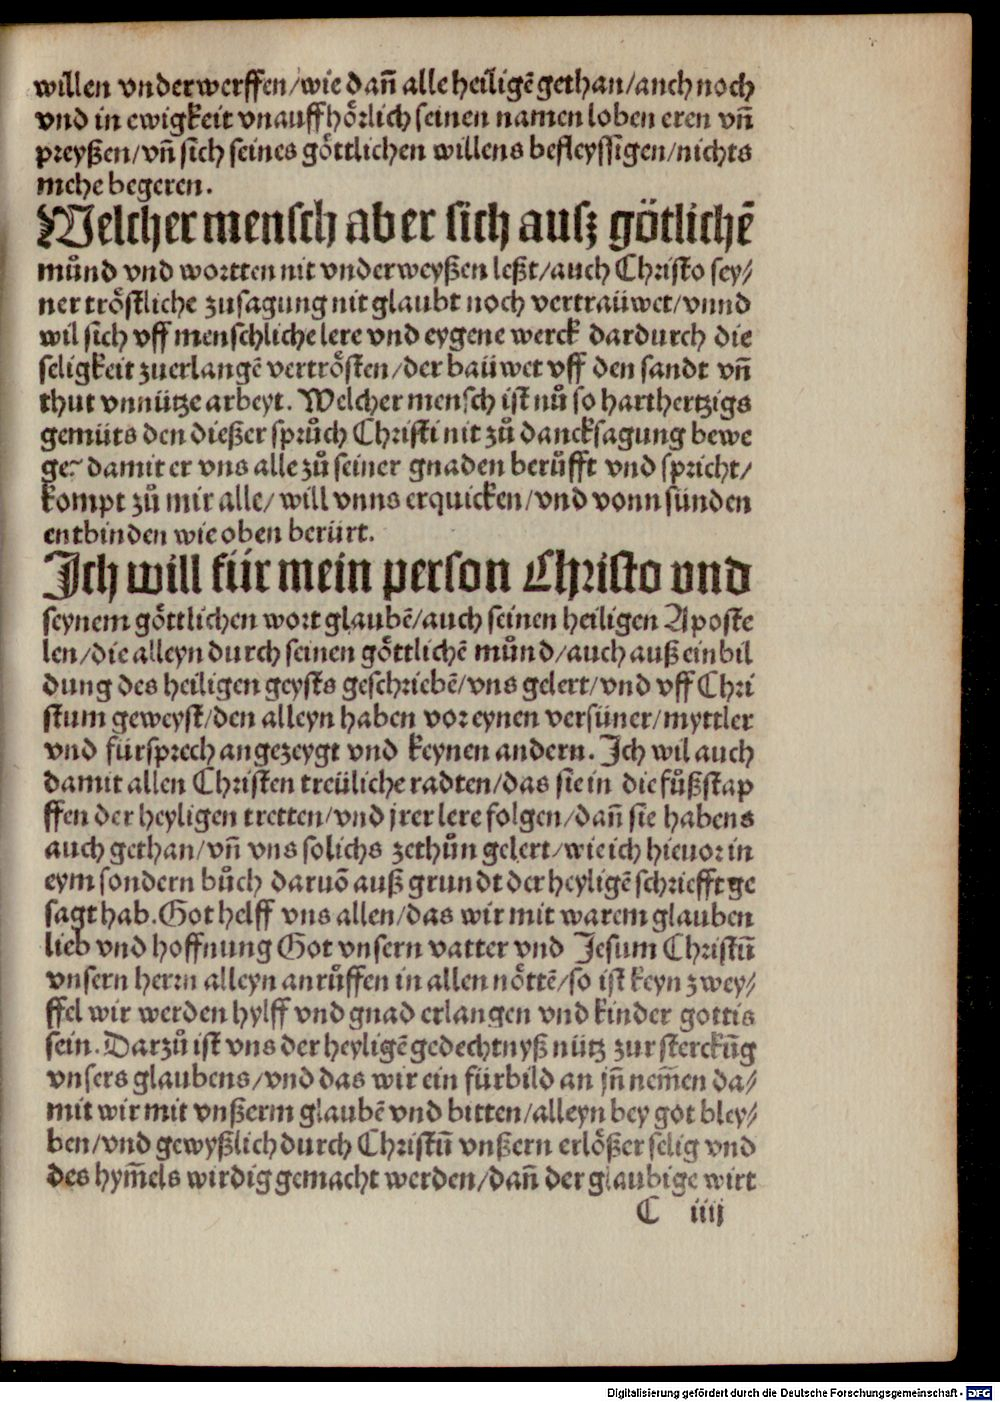 willen vnderwerffen/wie dañ alle heiligẽ gethan/auch noch
vnd in ewigkeit vnauffhoͤrlich seinen namen loben eren vñ
preyßen/vñ sich seines goͤttlichen willens befleyssigen/nichts
mehe begeren.
Welcher mensch aber sich ausz goͤtlichẽ
muͦnd vnd wortten nit vnderweyßen leßt/auch Christo sey/
ner troͤstliche zusagung nit glaubt noch vertraüwet/vnnd
wil sich vff menschliche lere vnd eygene werck dardurch die
seligkeit zuerlangẽ vertroͤsten/der baüwet vff den sandt vñ
thut vnnütze arbeyt. Welcher mensch ist nuͦ so harthertzigs
gemüts den dießer spruͦch Christi nit zuͦ dancksagung bewe
ge? damit er vns alle zuͦ seiner gnaden beruͦfft vnd spricht/
kompt zuͦ mir alle/ will vnns erquicken/vnd vonn sünden
entbinden wie oben berürt.
Ich will für mein person Christo vnd
seynem goͤttlichen wort glaubẽ/auch seinen heiligen Aposte
len/die alleyn durch seinen goͤttlichẽ muͦnd/auch auß einbil
dung des heiligen geysts geschriebẽ/vns gelert/vnd vff Chri
stum geweyst/den alleyn haben vor eynen versüner/myttler
vnd fürsprech angezeygt vnd keynen andern. Ich wil auch
damit allen Christen treüliche radten/das sie in die fuͦßstap
ffen der heyligen tretten/vnd jrer lere folgen/dañ sie habens
auch gethan/vñ vns solichs zethuͦn gelert/wie ich hieuor in
eym sondern buͦch daruõ auß grundt der heyligẽ schriefft ge
sagt hab. Got helff vns allen/das wir mit warem glauben
lieb vnd hoffnung Got vnsern vatter vnd Jesum Christũ
vnsern herrn alleyn anruͦffen in allen noͤttẽ/so ist keyn zwey/
ffel wir werden hylff vnd gnad erlangen vnd kinder gottis
sein. Darzuͦ ist vns der heyligẽ gedechtnyß nütz zur sterckũg
vnsers glaubens/vnd das wir ein fürbild an jñ nem̃en da/
mit wir mit vnßerm glaubẽ vnd bitten/alleyn bey got bley/
ben/vnd gewyßlich durch Christũ vnßern erloͤßer selig vnd
des hym̃els wirdig gemacht werden/dañ der glaubige wirt
C iiij
Digitalisierung gefördert durch die Deutsche Forschungsgemeinschaft - DFG